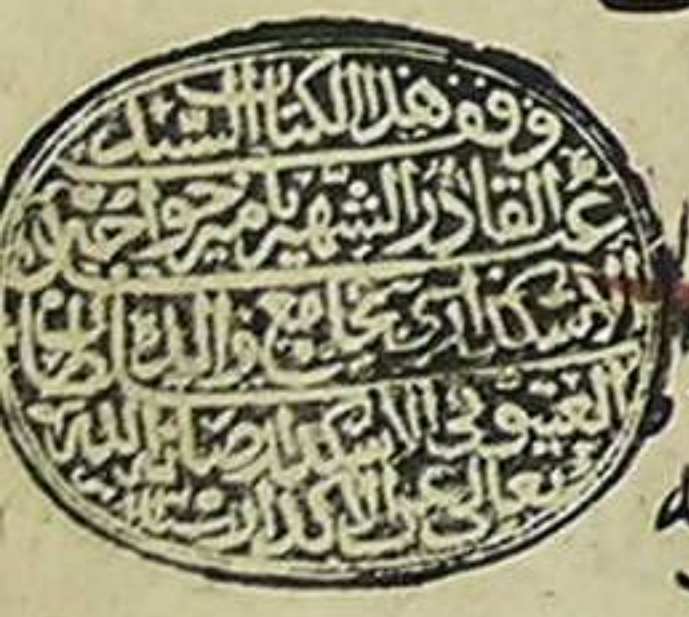 وقف هذا الكتاب السيد
عبد القادر الشهير بامير خواجه
الاسكداري بجامع والدة السلطان
العتيق في الاسكدار صانه الله
تعالى عن الاكدار سنه